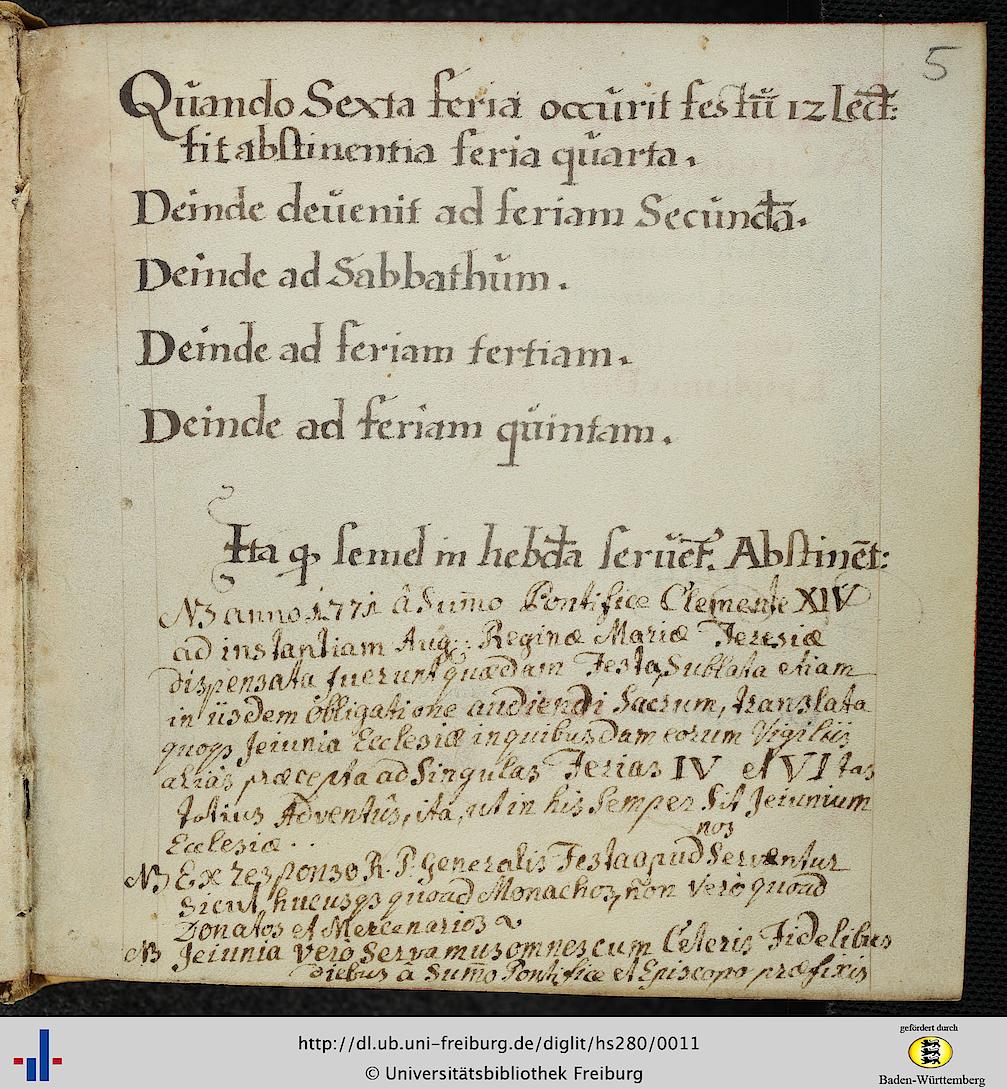 5
Quando Sexta feria occurit festũ 12 Lect:
fit abstinentia feria quarta.
Deinde devenit ad feriam Secundã.
Deinde ad Sabbathum.
Deinde ad feriam tertiam.
Deinde ad feriam quintam.
Ita qȝ semel in hebd̄a servet̃. Abstinẽt:
NB anno 1771 â Sum̃o Pontifice Clemente XIV
ad instantiam Aug: Reginæ Mariæ Teresiæ
dispensata fuerunt quædam Festa, Sublata etiam
in iisdem obligatione audiendi Sacrum, translata
quoqȝ Jeiunia Ecclesiæ in quibusdam eorum Vigiliis
alias præcepta ad Singulas Ferias IV et VI tas
totius Adventûs, ita, ut in his Semper Sit Jeiunium
Ecclesiæ..
nos
NB Ex responso R. P. Generalis Festa apud Serventur
Sicut hucusqȝ quoad Monachos, ñon vero quoad
Donatos et Mercenarios
NB Jeiunia vero Servamus omnes cum Ceteris Fidelibus
diebus a Sum̃o Pontifice et Episcopo præfixis
http://dl.ub.uni-freiburg.de/diglit/hs280/0011
© Universitätsbibliothek Freiburg
gefördert durch
Baden-Württemberg